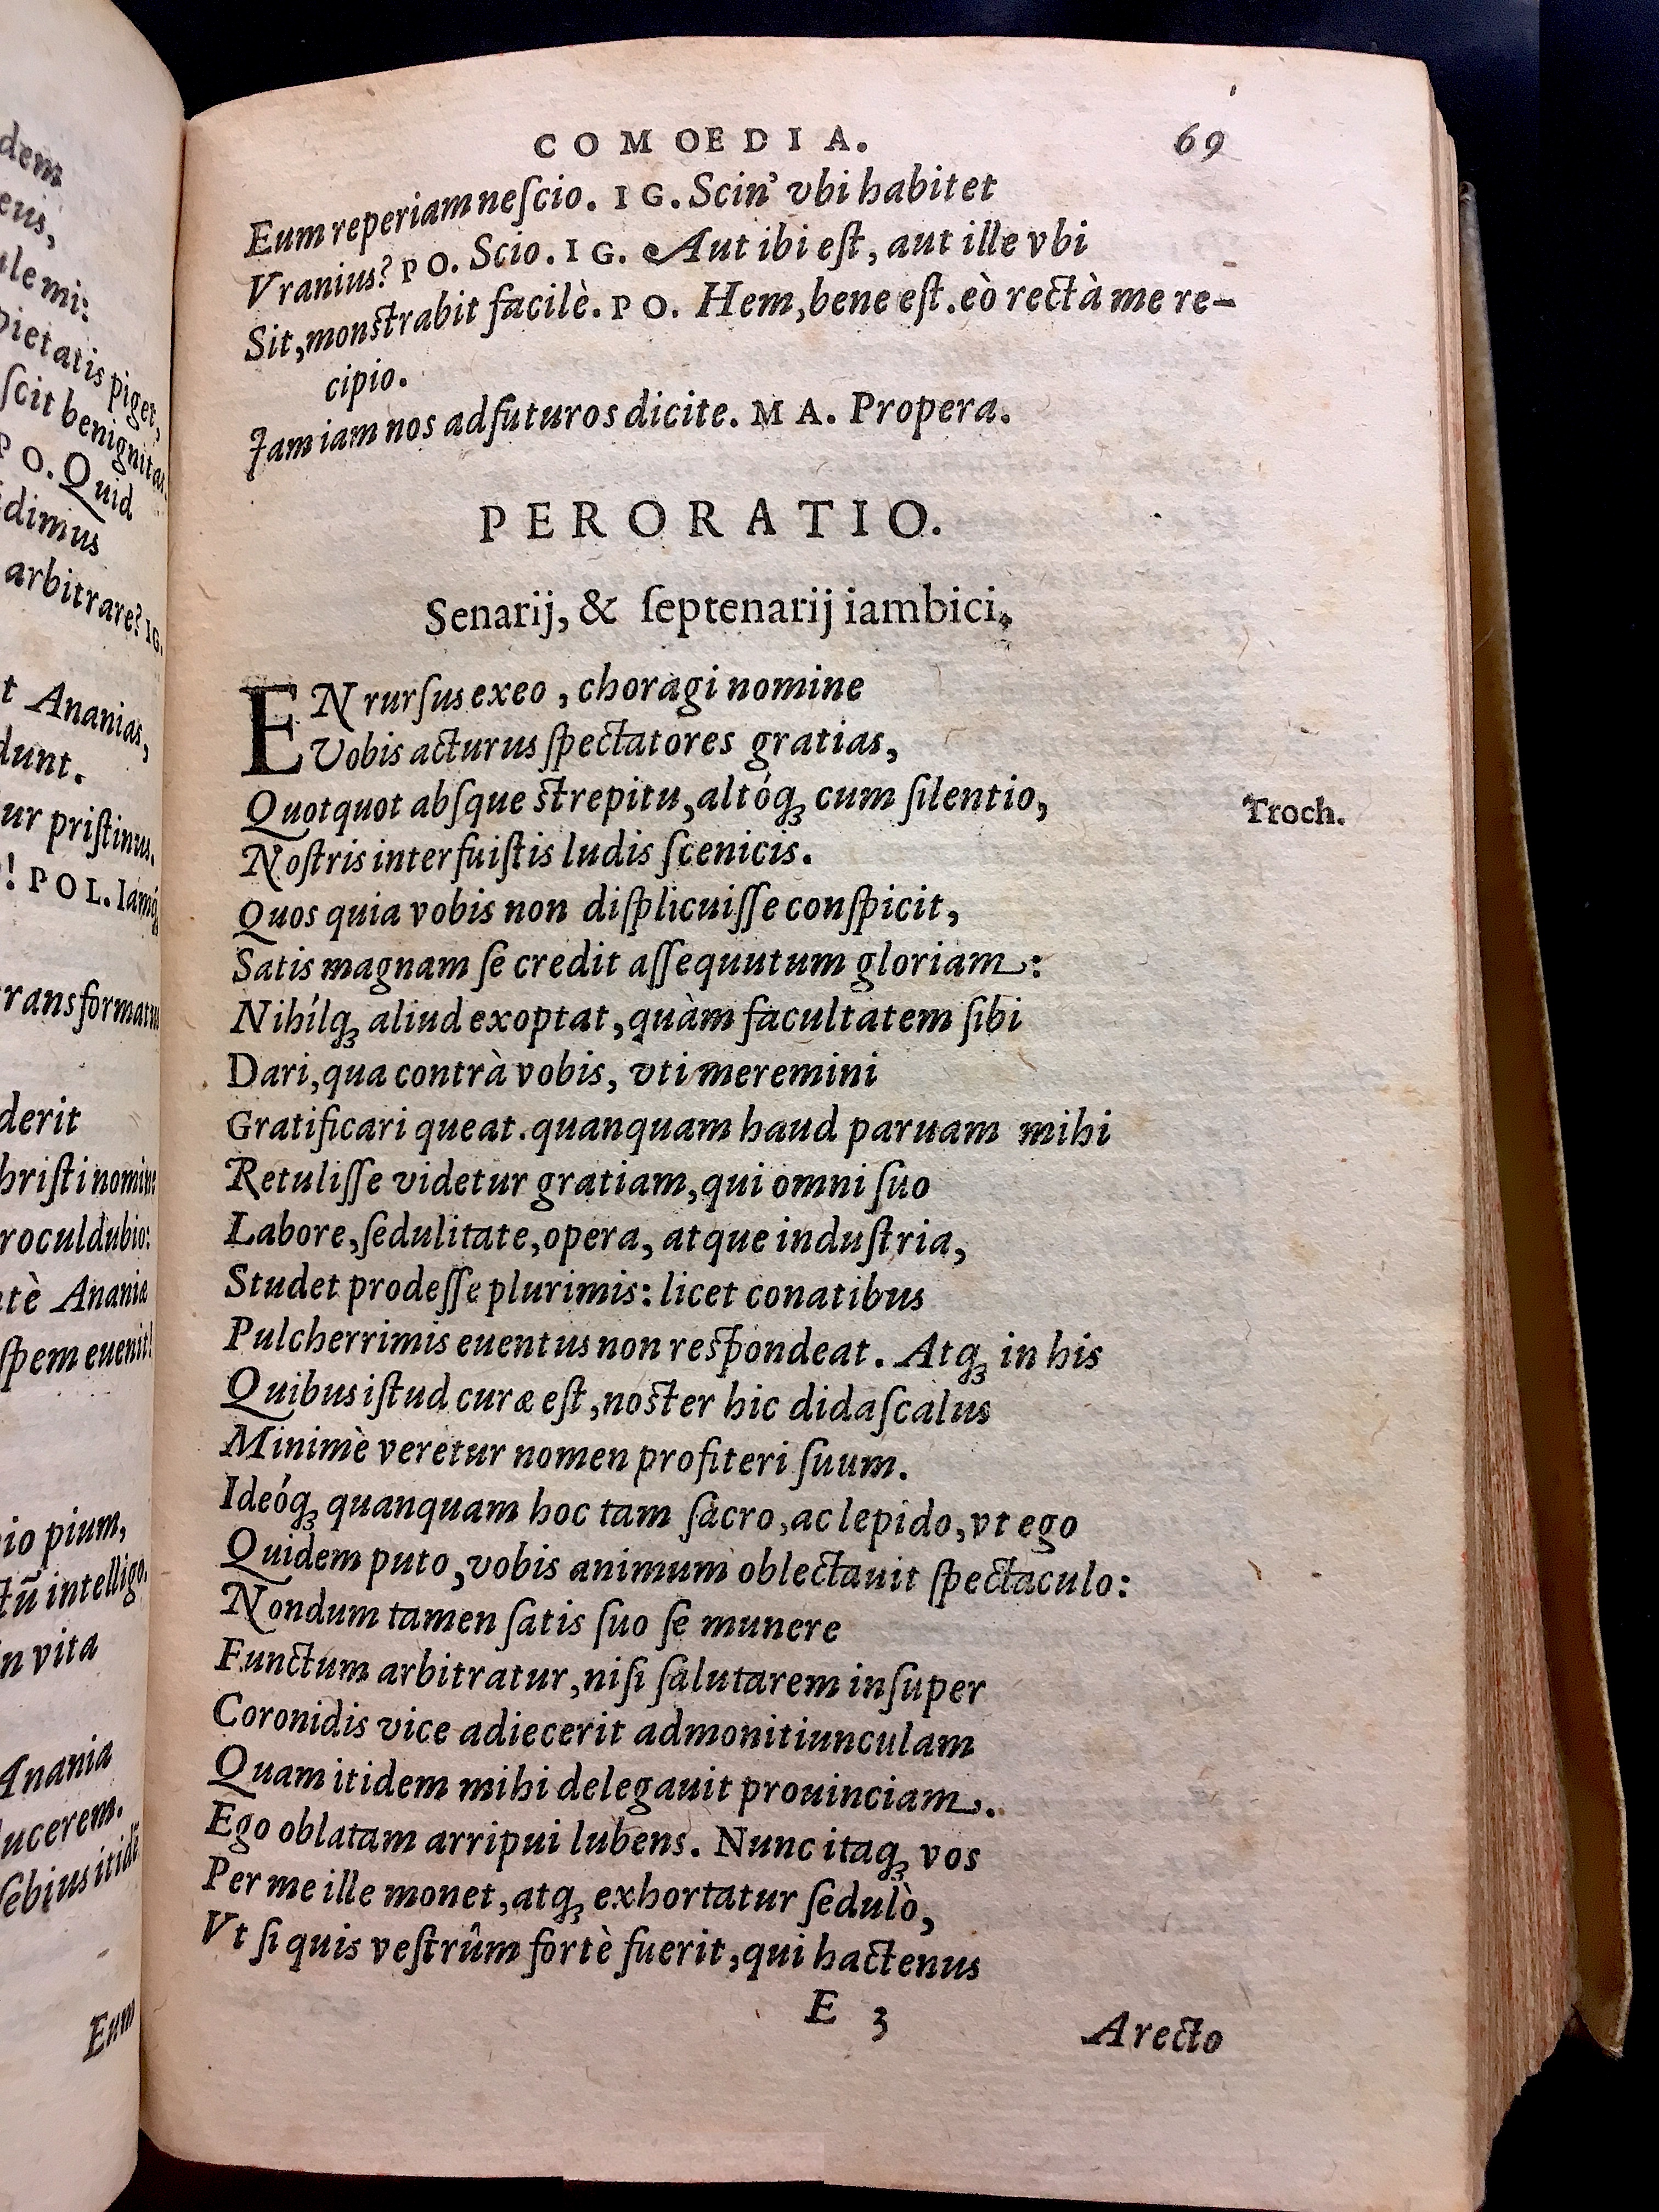 dem
eus,
ule mi:
pietatis piget,
ſcit benignitas.
P O. Quid
dimus
arbitrare? IG.
t Ananias,
dunt.
ur priſtinus.
! POL. Iamq́ꝫ
transformatus
derit
hriſti nomine
roculdubio:
tè Anania
ſpem euenit!
io pium,
ctū intelligo.
n vita
Anania
ucerem.
ſebius itidē
Eum
COMOEDIA. 69
Eum reperiam neſcio. IG. Scin' vbi habitet
Vranius? PO. Scio. IG. Aut ibi eſt, aut ille vbi
Sit, monstrabit facilè. PO. Hem, bene eſt. eò rectà me re-
cipio.
Jam iam nos adfuturos dicite. MA. Propera.
PERORATIO.
Senarij, & ſeptenarij iambici.
EN rurſus exeo, choragi nomine
Vobis acturus ſpectatores gratias,
Quotquot abſque strepitu, altóqꝫ cum ſilentio, Troch.
Noſtris interfuiſtis ludis ſcenicis.
Quos quia vobis non diſplicuiſſe conſpicit,
Satis magnam ſe credit aſſequutum gloriam:
Nihílqꝫ aliud exoptat, quàm facultatem ſibi
Dari, qua contrà vobis, vti meremini
Gratificari queat. quanquam haud paruam mihi
Retuliſſe videtur gratiam, qui omni ſuo
Labore, ſedulitate, opera, atque induſtria,
Studet prodeſſe plurimis: licet conatibus
Pulcherrimis euentus non reſpondeat. Atqꝫ in his
Quibus iſtud curæ eſt, noster hic didaſcalus
Minimè veretur nomen profiteri ſuum.
Ideóqꝫ quanquam hoc tam ſacro, ac lepido, vt ego
Quidem puto, vobis animum oblectauit ſpectaculo:
Nondum tamen ſatis ſuo ſe munere
Functum arbitratur, niſi ſalutarem inſuper
Coronidis vice adiecerit admonitiunculam
Quam itidem mihi delegauit prouinciam.
Ego oblatam arripui lubens. Nunc itaqꝫ vos
Per me ille monet, atqꝫ exhortatur ſedulò,
Vt ſi quis veſtrûm fortè fuerit, qui hactenus
E 3 Arecto